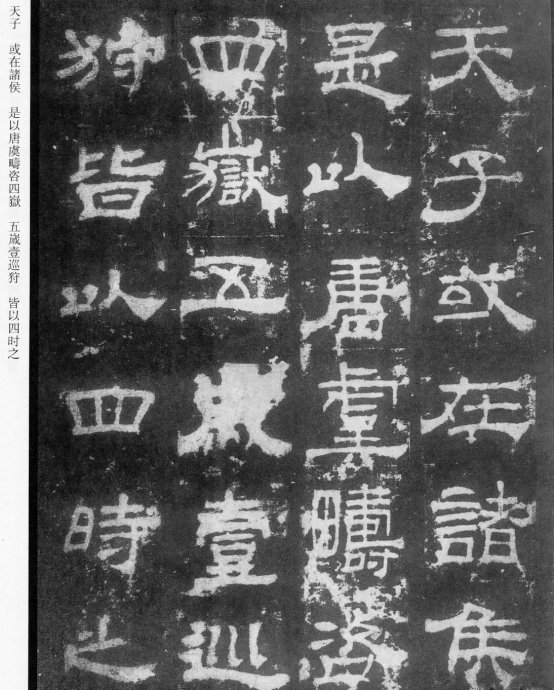 天子或在諸侯
是以唐虞疇咨
四嶽五歲壹巡
狩皆以四時之
天子　或在諸侯　是以唐虞疇咨四嶽　五歳壹巡狩　皆以四时之